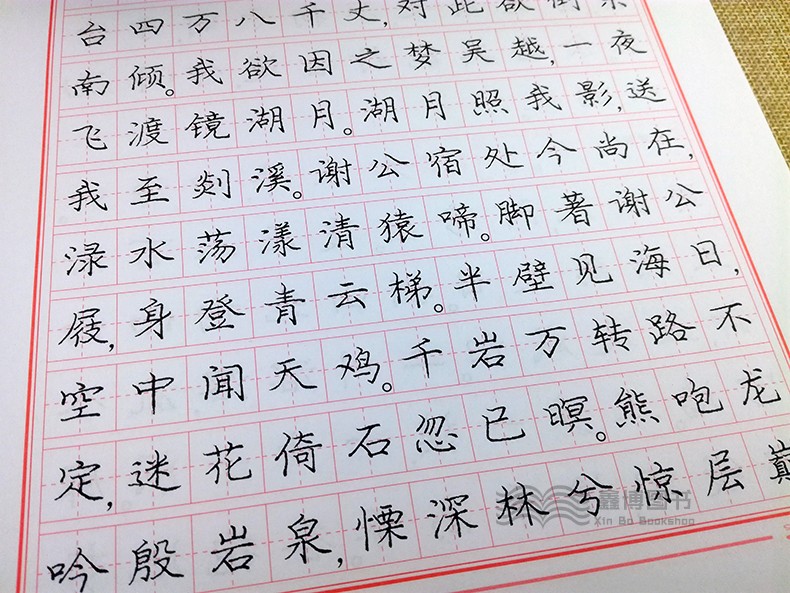 台四万八千丈,对此欲倒东
南倾。我欲因之梦吴越,一夜
飞渡镜湖月。湖月照我影,送
我至剡溪。谢公宿处今尚在,
渌水荡漾清猿啼。脚著谢公
屐,身登青云梯。半壁见海日,
空中闻天鸡。千岩万转路不
定,迷花倚石忽已暝。熊咆龙
吟殷岩泉,慄深林兮惊层巅
鑫博图书
Xin Bo Bookshop